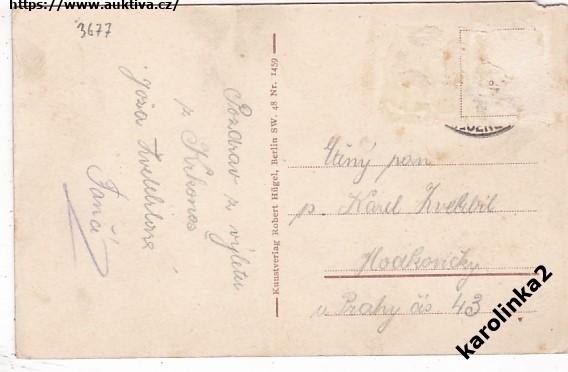 https://www.auktiva.cz/
3677
Pozdrav z výletu
z Krkonoš
Joža Zvelebilová
Fančí
Kunstverlag Robert Hügel, Berlin SW. 48 Nr. 1459
Ctěný pan
p. Karel Zvelebil
Hodkovičky
u Prahy čís 43
karolinka2